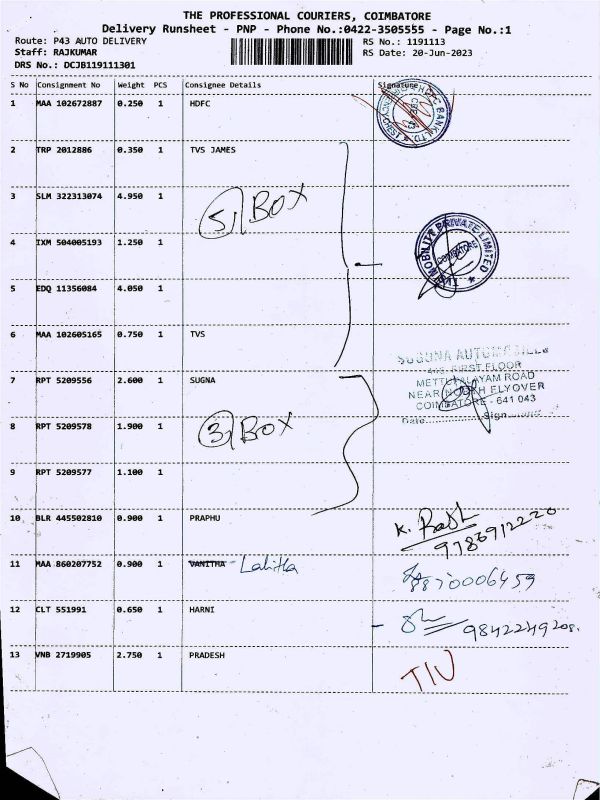 THE PROFESSIONAL COURIERS, COIMBATORE
Delivery Runsheet - PNP - Phone No.:0422-3505555 - Page No.:1
Route: P43 AUTO DELIVERY RS No.: 1191113
Staff: RAJKUMAR RS Date: 20-Jun-2023
DRS No.: DCJB119111301
S No Consignment No Weight PCS Consignee Details Signature
1 MAA 102672887 0.250 1 HDFC
HDFC BANK LTD
2 TRP 2012886 0.350 1 TVS JAMES
3 SLM 322313074 4.950 1
5 BOX
4 IXM 504005193 1.250 1
TVS MOBILITY PRIVATE LIMITED
COIMBATORE
5 EDQ 11356084 4.050 1
6 MAA 102605165 0.750 1 TVS
SUGUNA AUTOMOBILES
FIRST FLOOR
7 RPT 5209556 2.600 1 SUGNA
METTUPALAYAM ROAD
NEAR NORTH FLYOVER
COIMBATORE - 641 043
Date Sign
8 RPT 5209578 1.900 1
3 BOX
9 RPT 5209577 1.100 1
10 BLR 445502810 0.900 1 PRAPHU
K.
11 MAA 860207752 0.900 1 VANITHA Lalitha
8870006459
12 CLT 551991 0.650 1 HARNI
9842249208
13 VNB 2719905 2.750 1 PRADESH